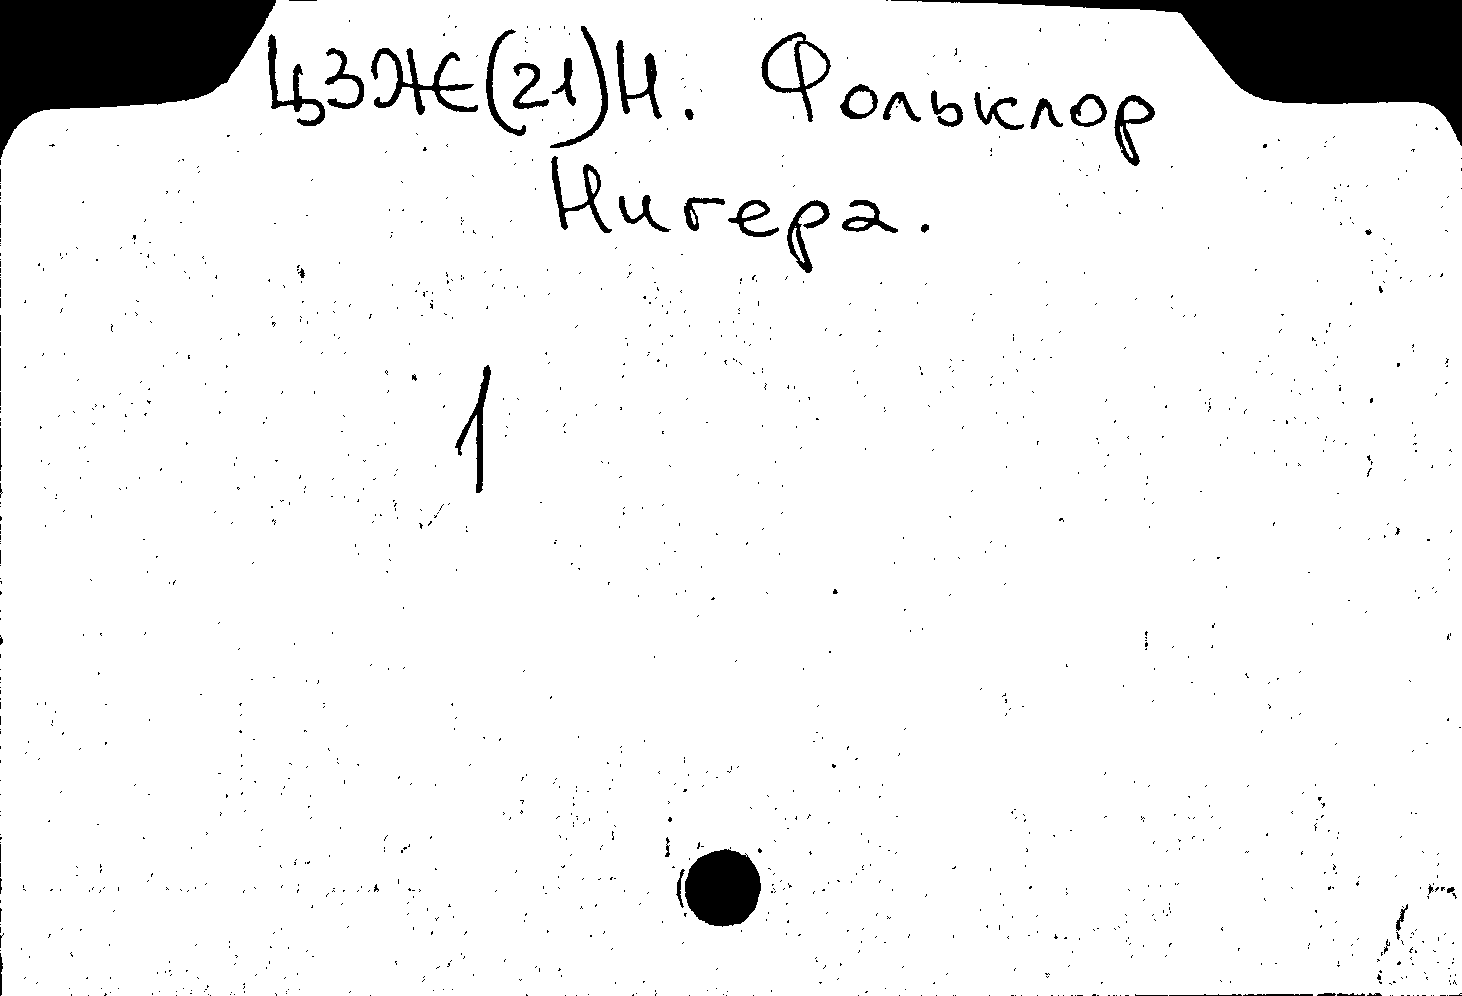 ЦЗЖ(21)Н. Фольклор
Нигера.
1